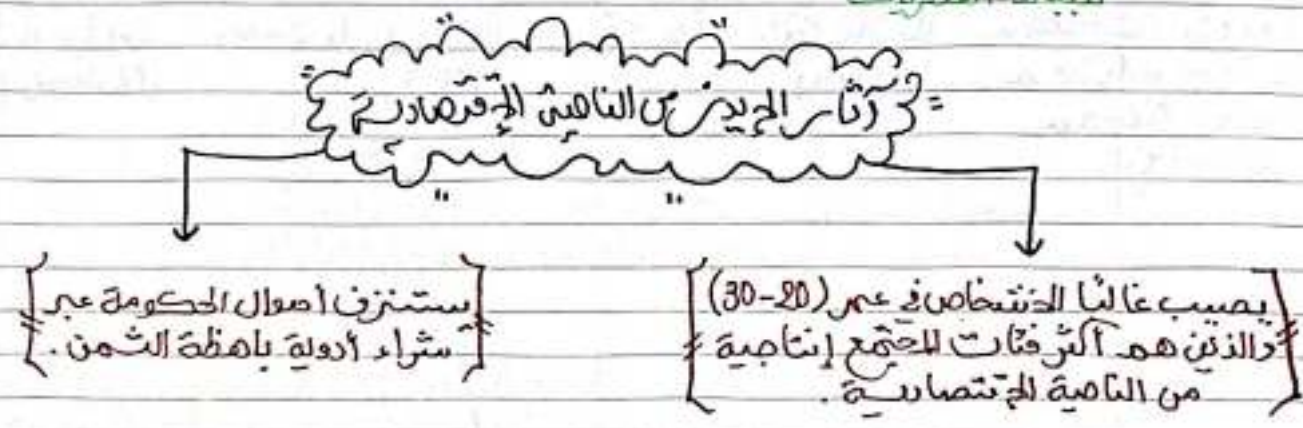 آثار الإيدز من الناحية الإقتصادية
يصيب غالبًا الأشخاص في عمر (20-30)
والذين هم أكثر فئات المجتمع إنتاجية
من الناحية الإقتصادية.
يستنزف أموال الحكومة عبر
شراء أدوية باهظة الثمن.